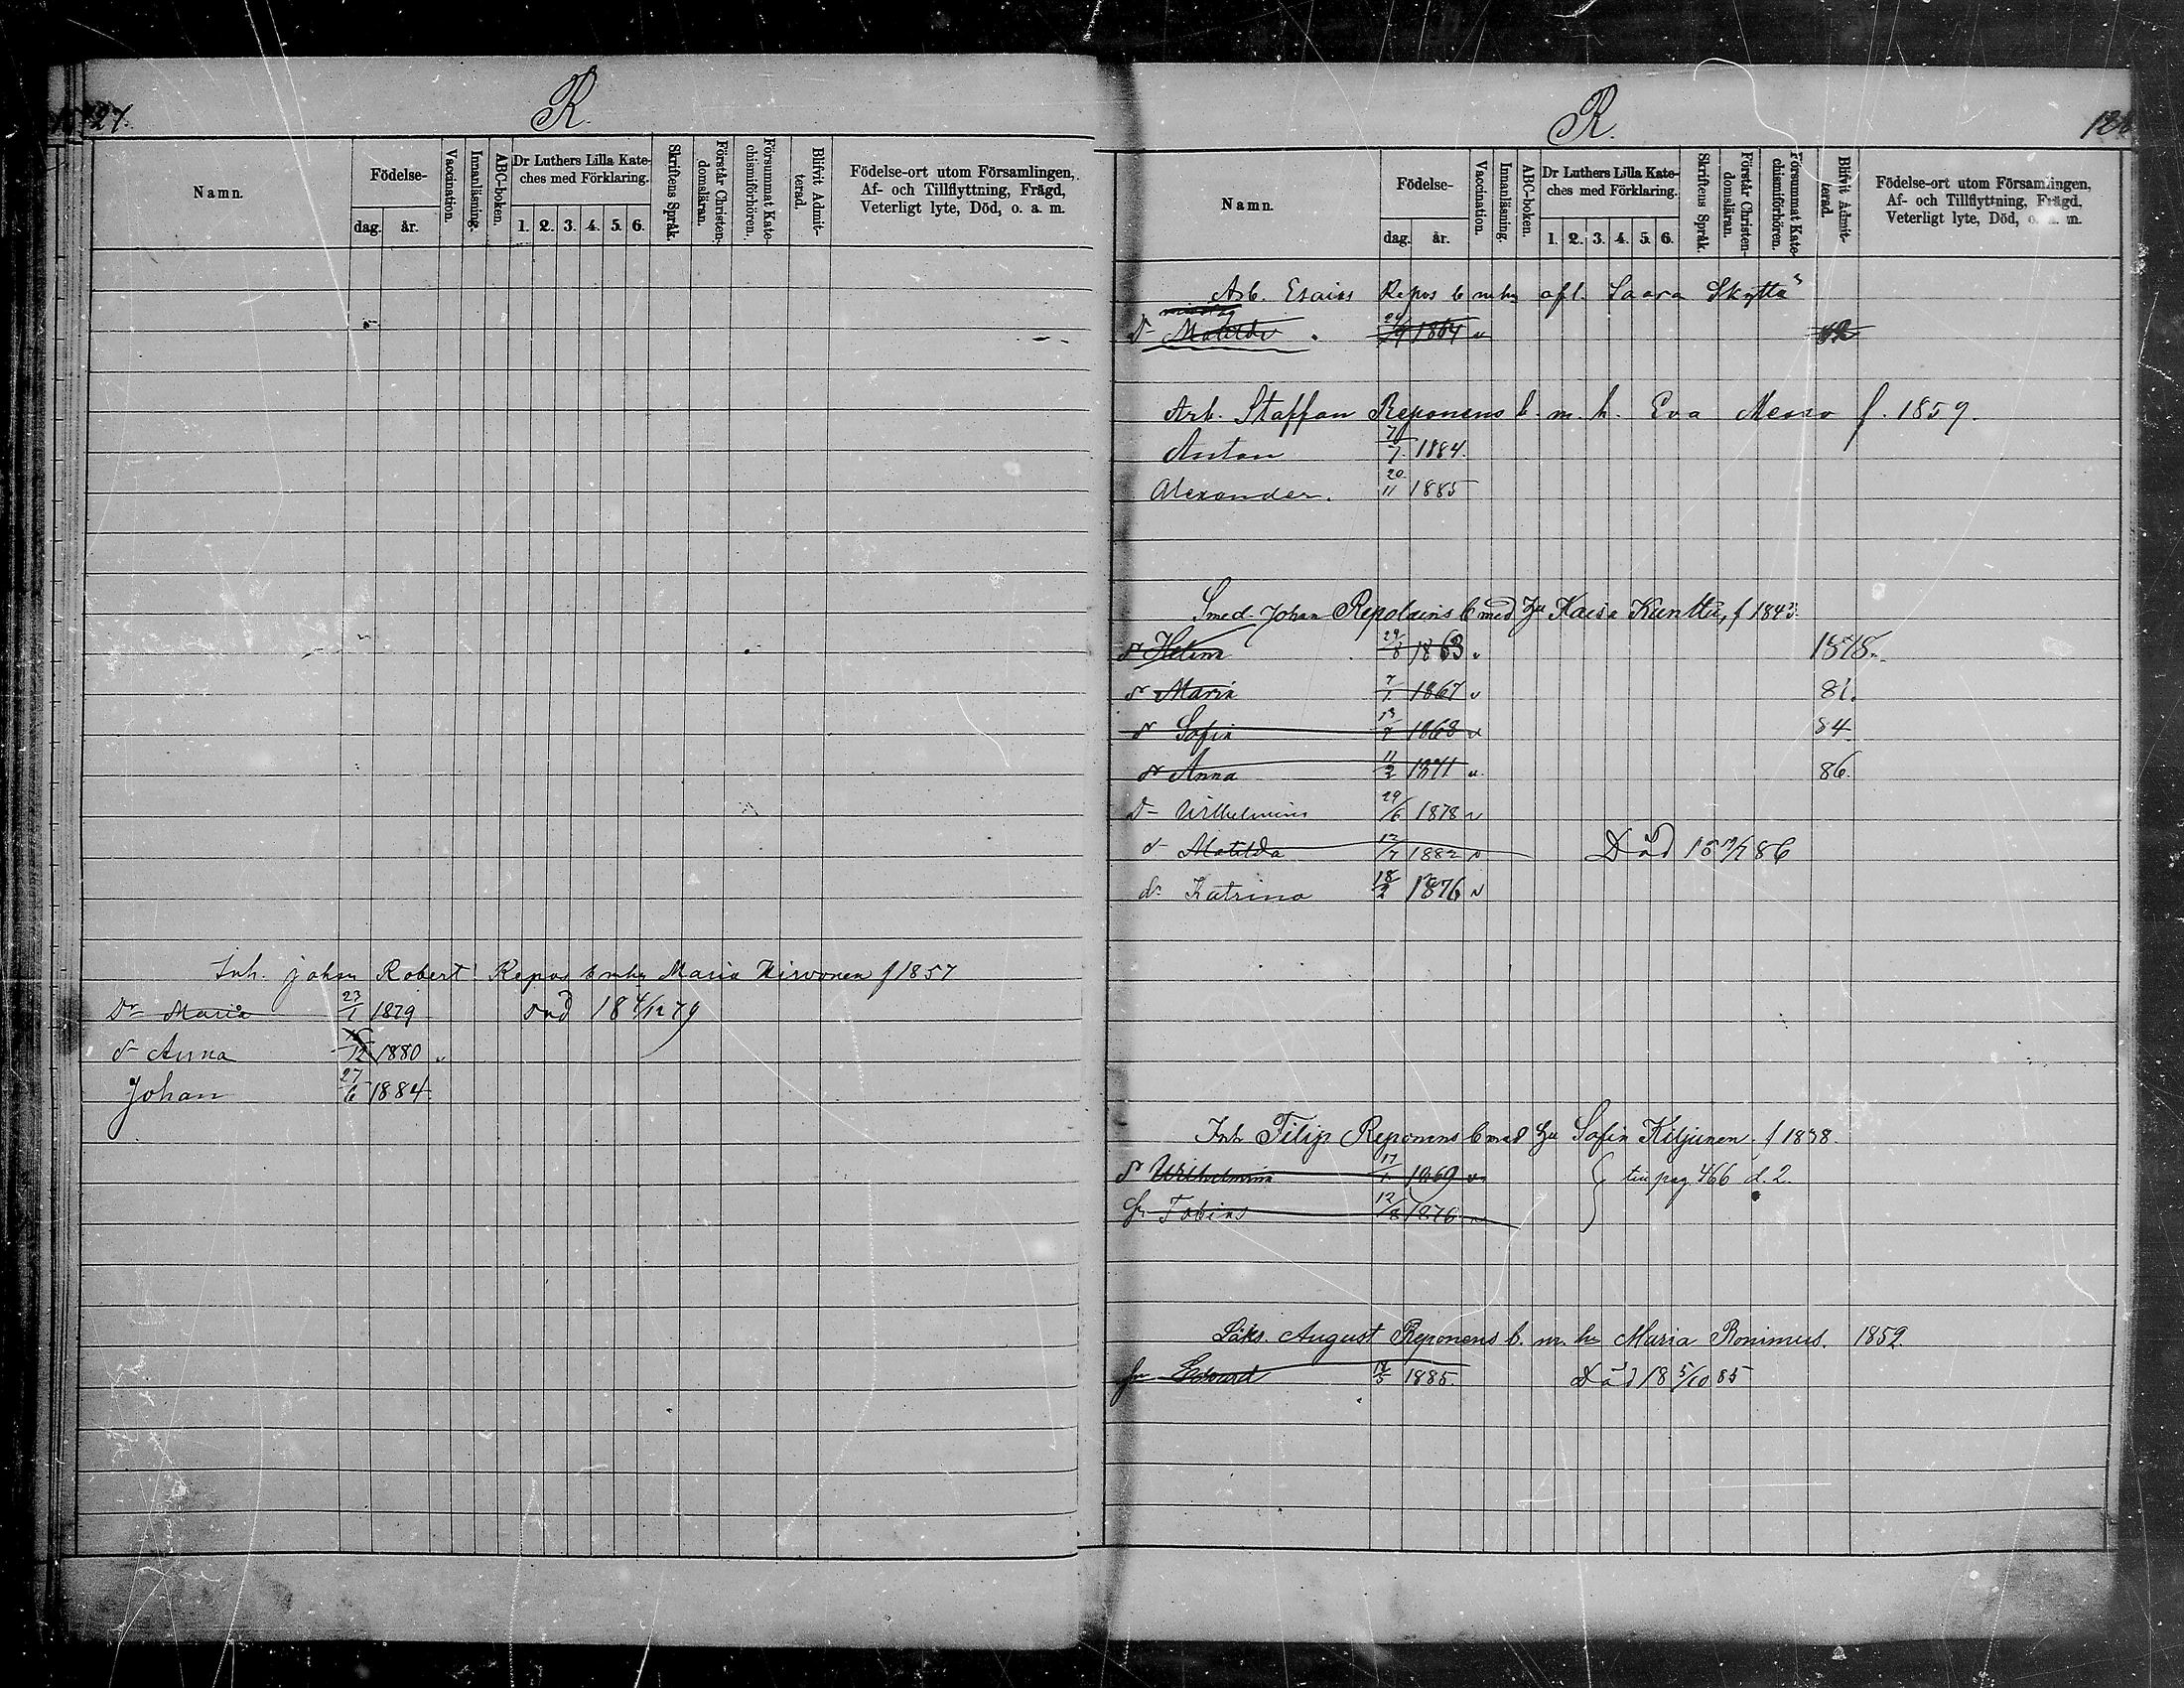 127.
R.
Namn.
Födelse-
dag.
år.
Vaccination.
Innanläsning.
ABC-boken.
Dr Luthers Lilla Kate-
ches med Förklaring.
1. 2. 3. 4. 5. 6.
Skriftens Språk.
Förstår Christen-
domsläran.
Försummat Kate-
chismiförhören.
Blifvit Admit-
terad.
Födelse-ort utom Församlingen,
Af- och Tillflyttning, Frägd,
Veterligt lyte, Död, o. a. m.
Inh. Johan Robert Repos b mhu Maria Hirvonen f 1857
Dr Maria 23/1 1879 död 18 4/12 79
dr Anna /12 1880 v
Johan 27/6 1884
R.
Namn.
Födelse-
dag.
år.
Vaccination.
Innanläsning.
ABC-boken.
Dr Luthers Lilla Kate-
ches med Förklaring.
1. 2. 3. 4. 5. 6.
Skriftens Språk.
Förstår Christen-
domsläran.
Försummat Kate-
chismiförhören.
Blifvit Admit-
terad.
Födelse-ort utom Församlingen,
Af- och Tillflyttning, Frägd,
Veterligt lyte, Död, o. a. m.
Arb. Esaias Repos b mhu afl. Saara Skyttä
Dr Matilda 1864 v
Arb. Staffan Reponens b. m. h. Eva Messo f. 1859.
Anton 7/7 1884.
Alexander. 20/11 1885
Smed. Johan Repolains b med Hu Kaisa Kunttu, f 1843.
dr Helena 29/8 1863 v 1878.
dr Maria 7/1 1867 v 81.
dr Sofia 13/7 1868 v 84
dr Anna 11/2 1871 v. 86.
Dr Wilhelmina 29/6 1878 v
dr Matilda 12/7 1882 v Död 18 /7 86
dr Katrina 18/2 1876 v
Inh Filip Reponens b med Hu Sofia Kiljunen f 1838.
dr Wilhelmina 17/1 1869 v
till pag. 466 d. 2.
Sn Tobias 12/8 1876
Lösk. August Reponens b. m. hu Maria Ronimus. 1859.
Sn Edvard 1885. Död 18 5/10 85